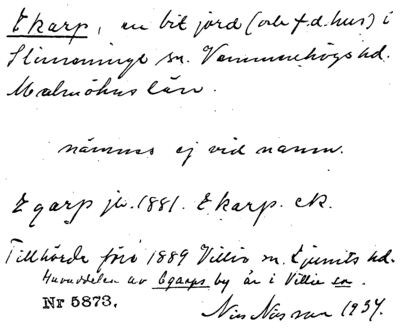 Ekarp, en bit jord (och f.d. hus) i
Slimminge sn. Vemmenhögs hd.
Malmöhus län.
nämnes ej vid namn.
Egarp jb. 1881. Ekarp ek.
Tillhörde före 1889 Villie sn. Ljunits hd.
Huvuddelen av Egarps by är i Villie sn.
Nr 5873.
1934.